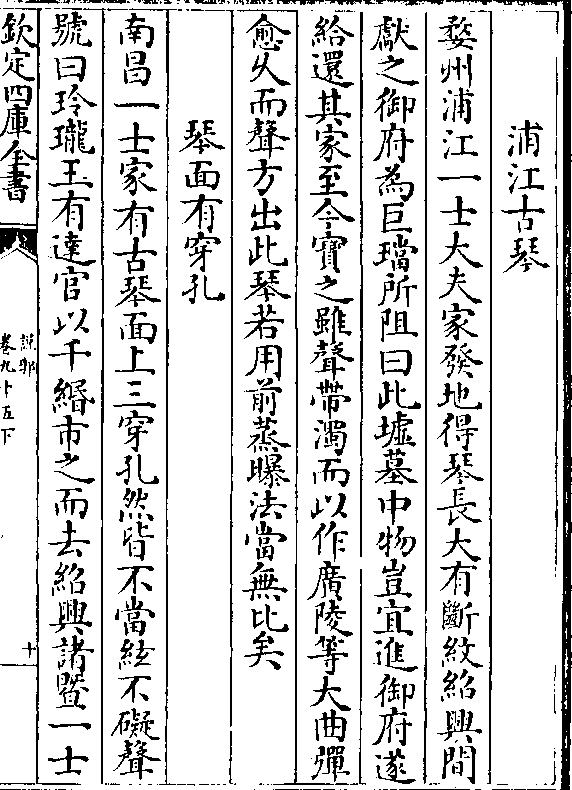 浦江古琴
婺州浦江一士大夫家發地得琴長大有斷紋紹興間
獻之御府為巨璫所阻曰此墟墓中物豈宜進御府遂
給還其家至今寳之雖聲帶濁而以作廣陵等大曲彈
愈久而聲方出此琴若用前蒸曝法當無比矣
琴面有穿孔
南昌一士家有古琴面上三穿孔然皆不當絃不礙聲
號曰玲瓏玉有達官以千緡市之而去紹興諸暨一士
欽定四庫全書
說郛
卷九十五下
十